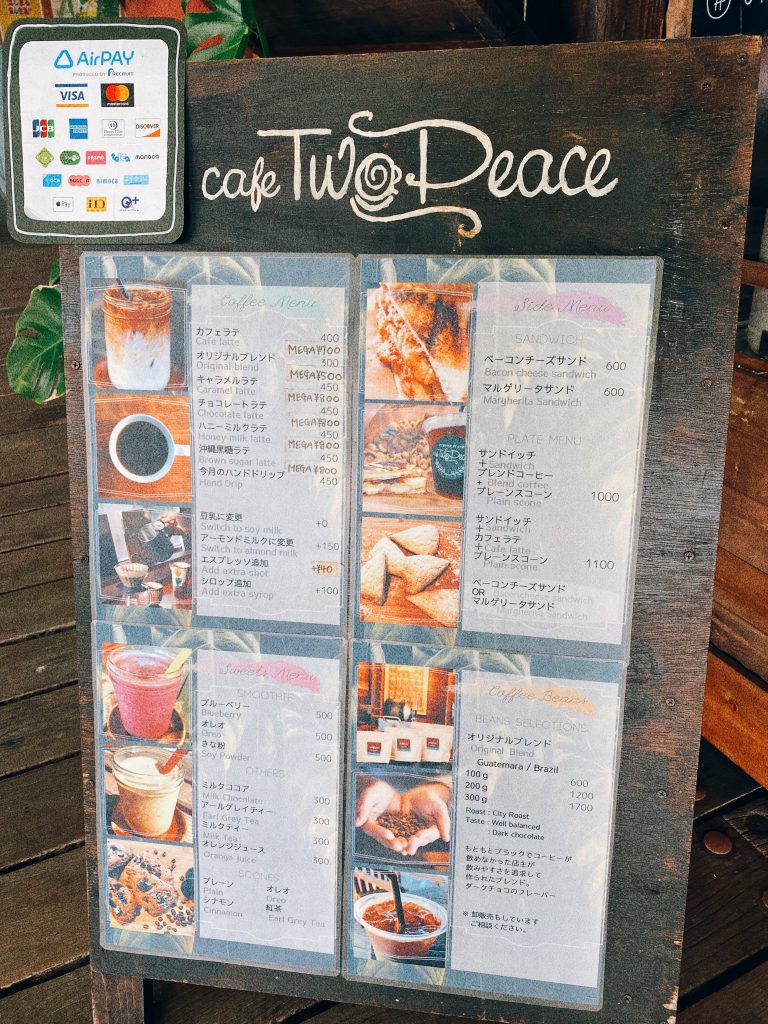 AirPAY
PRODUCED BY RECRUIT
VISA
mastercard
JCB
AMERICAN EXPRESS
Diners Club
DISCOVER
manaca
nimoca
Pay
iD
cafe Two Peace
Coffee Menu
カフェラテ 400
Cafe latte
MEGA¥700
オリジナルブレンド 300
Original blend
MEGA¥500
キャラメルラテ 450
Caramel latte
MEGA¥800
チョコレートラテ 450
Chocolate latte
MEGA¥800
ハニーミルクラテ 450
Honey milk latte
MEGA¥800
沖縄黒糖ラテ 450
Brown sugar latte
MEGA¥800
今月のハンドドリップ 450
Hand Drip
豆乳に変更 +0
Switch to soy milk
アーモンドミルクに変更 +150
Switch to almond milk
エスプレッソ追加
Add extra shot
シロップ追加 +100
Add extra syrop
Side Menu
SANDWICH
ベーコンチーズサンド 600
Bacon cheese sandwich
マルゲリータサンド 600
Margherita Sandwich
PLATE MENU
サンドイッチ
+ Sandwich
ブレンドコーヒー
+ Blend coffee
プレーンスコーン 1000
Plain scone
サンドイッチ
+ Sandwich
カフェラテ
+ Cafe latte
プレーンスコーン 1100
Plain scone
ベーコンチーズサンド
OR Baconcheese sandwich
マルゲリータサンド
Margherita Sandwich
Sweets Menu
SMOOTHIE
ブルーベリー 500
Blueberry
オレオ 500
Oreo
きな粉 500
Soy Powder
OTHERS
ミルクココア 300
Milk Chocolate
アールグレイティー 300
Earl Grey Tea
ミルクティー 300
Milk Tea
オレンジジュース 300
Orange juice
SCONES
プレーン オレオ
Plain Oreo
シナモン 紅茶
Cinnamon Earl Grey Tea
Coffee Beans
BEANS SELECTIONS
オリジナルブレンド
Original Blend
Guatemara / Brazil
100 g 600
200 g 1200
300 g 1700
Roast : City Roast
Taste : Well balanced
: Dark chocolate
もともとブラックでコーヒーが
飲めなかった店主が
飲みやすさを追求して
作られたブレンド。
ダークチョコのフレーバー
※ 卸販売もしています
ご相談ください。